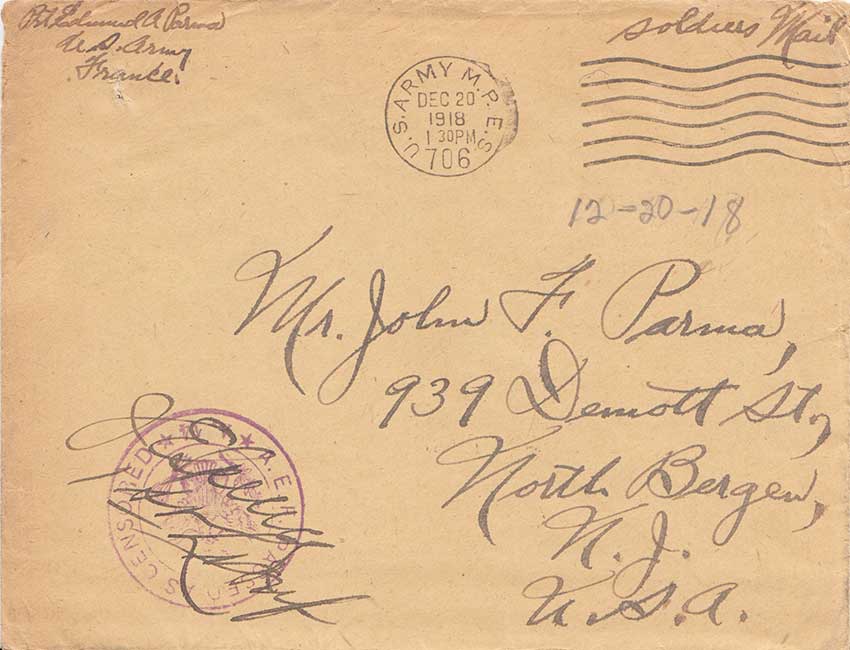 Pvt Edmund A Parma
U.S. Army
France.
Soldiers Mail
U.S. ARMY M.P.E.S.
DEC 20
1918
1 30PM
706
12-20-18
Mr. John F. Parma,
939 Demott St.,
North Bergen,
N. J.
U. S. A.
A. E. F. PASSED AS CENSORED